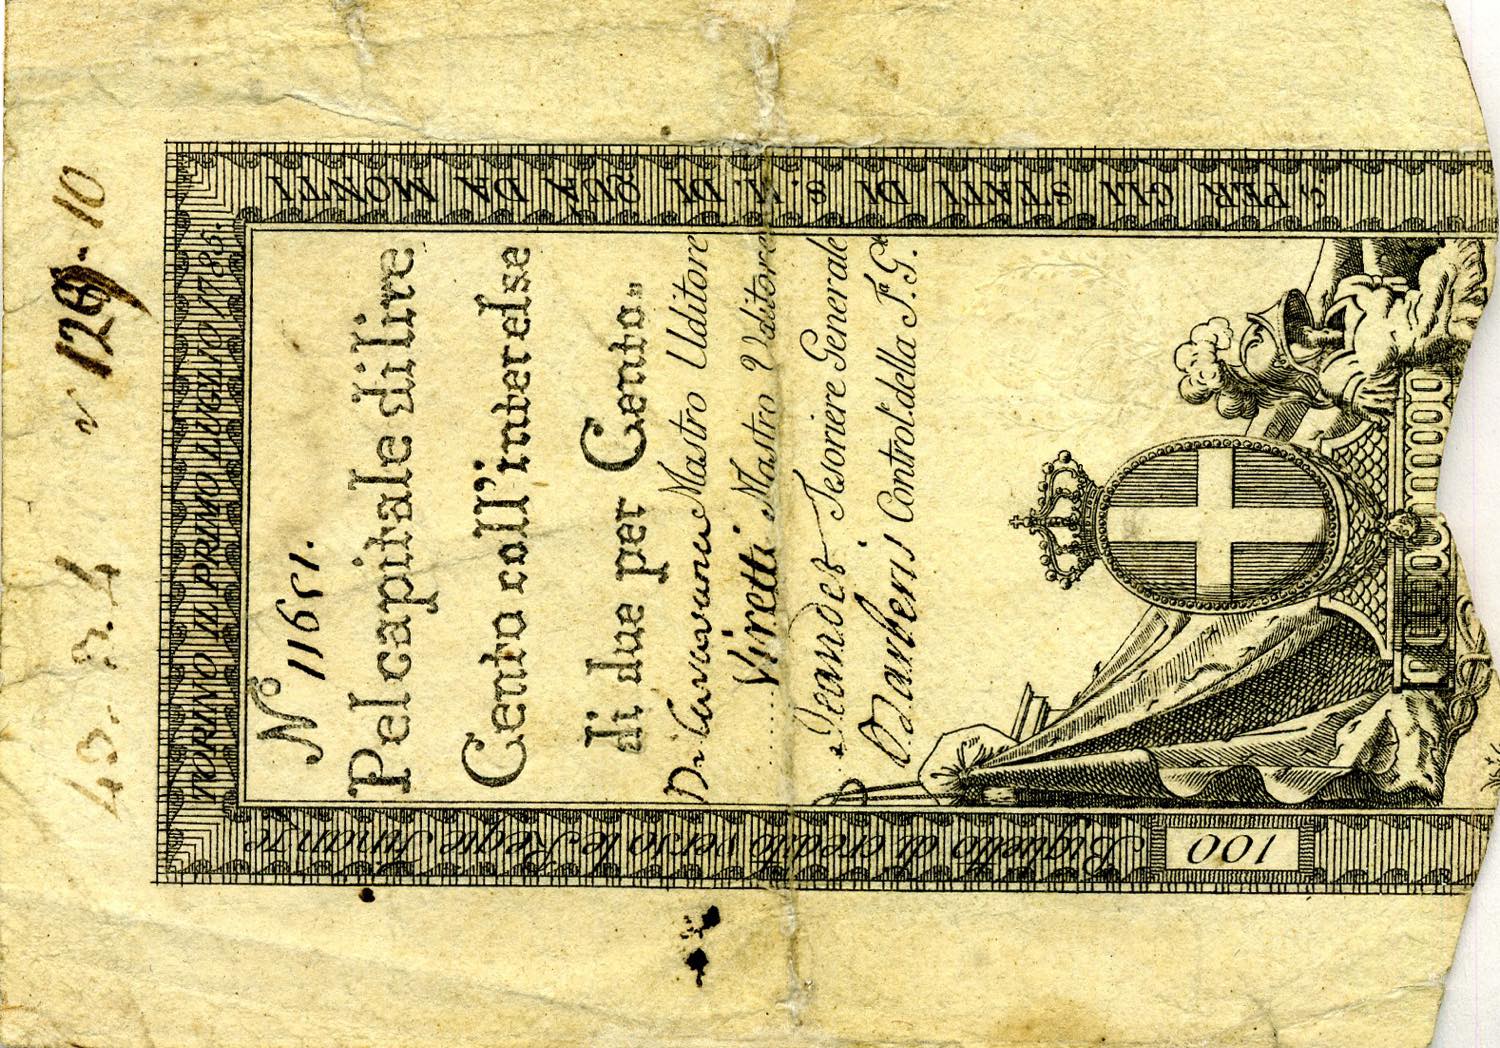 TORINO IL PRIMO LUGLIO 1785.
C. PER GLI STATI DI S. M. DI QUA DA MONTI
Biglietto di credito verso le Regie Finanze
100
N.º 11651.
Pel capitale di lire
Cento coll'interesse
di due per Cento.
Mastro Uditore
Viretti Mastro Uditore
Tesoriere Generale
Barberis Control. della T. G.